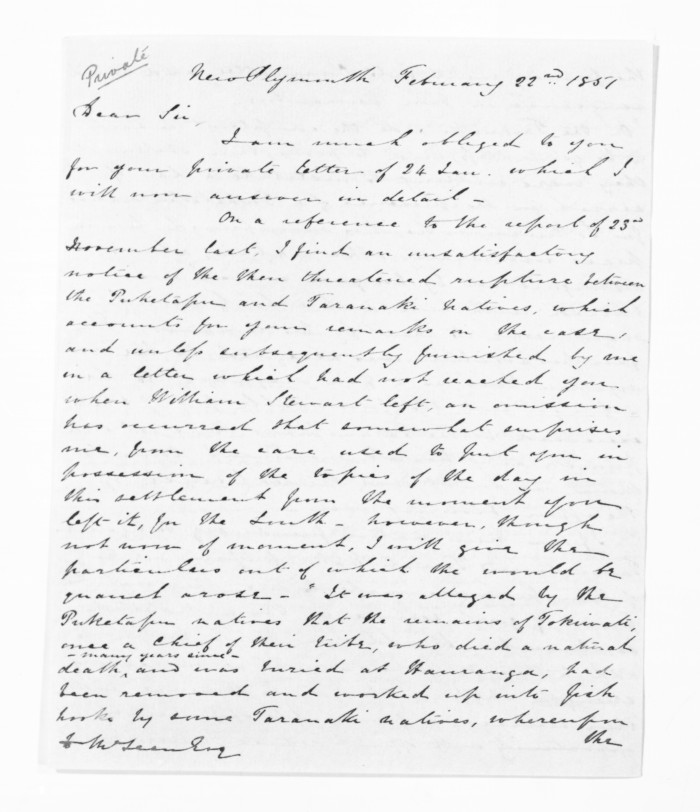 Private
New Plymouth February 22nd. 1851
Dear Sir
I am much obliged to you
for your private letter of 24 Jan. which I
will now answer in detail -
On a reference to the report of 23rd
November last, I find an unsatisfactory
notice of the then threatened rupture between
the Puketapu and Taranaki Natives, which
accounts for your remarks on the case,
and unless subsequently furnished by me
in a letter which had not reached you
when William Stewart left, an omission
has occurred that somewhat surprises
me, from the care used to put you in
possession of the topics of the day in
this settlement from the moment you
left it, for the South - however, though
not now of moment, I will give the
particulars out of which the would be
quarrel arose - "It was alleged by the
Puketapu natives that the remains of Tokiwati,
once a Chief of their tribe, who died a natural
- many years since -
death, and was buried at Hauranga, had
been removed and worked up into fish
hooks by some Taranaki natives, whereupon
the
D McLean Esq